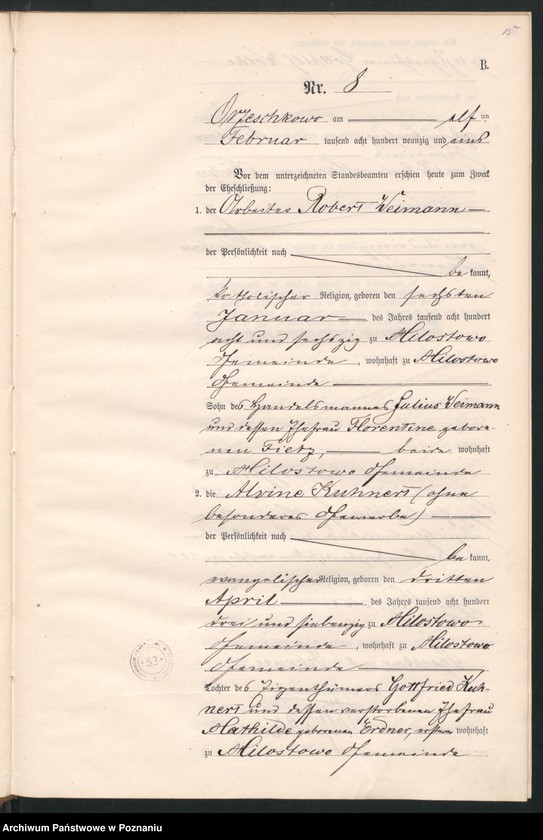 15
B.
Nr. 8
Orzeschkowo am elf ten
Februar tausend acht hundert neunzig und eins
Vor dem unterzeichneten Standesbeamten erschien heute zum Zweck
der Eheschließung:
1. der Arbeiter Robert Weimann
der Persönlichkeit nach
be kannt,
katholischer Religion, geboren den sechsten
Januar des Jahres tausend acht hundert
acht und sechszig zu Milostowo
Gemeinde, wohnhaft zu Milostowo
Gemeinde
Sohn des Handelsmannes Julius Weimann
und dessen Ehefrau Florentine gebore-
nen Fietz, beide wohnhaft
zu Milostowo Gemeinde
2. die Alvine Kuhnert (ohne
besonderes Gewerbe)
der Persönlichkeit nach
be kannt,
evangelischer Religion, geboren den dritten
April des Jahres tausend acht hundert
drei und siebenzig zu Milostowo
Gemeinde, wohnhaft zu Milostowo
Gemeinde
53
Tochter des Eigenthümers Gottfried Kuh-
nert und dessen verstorbenen Ehefrau
Mathilde geborenen Erdner, ersterer wohnhaft
zu Milostowo Gemeinde
Archiwum Państwowe w Poznaniu